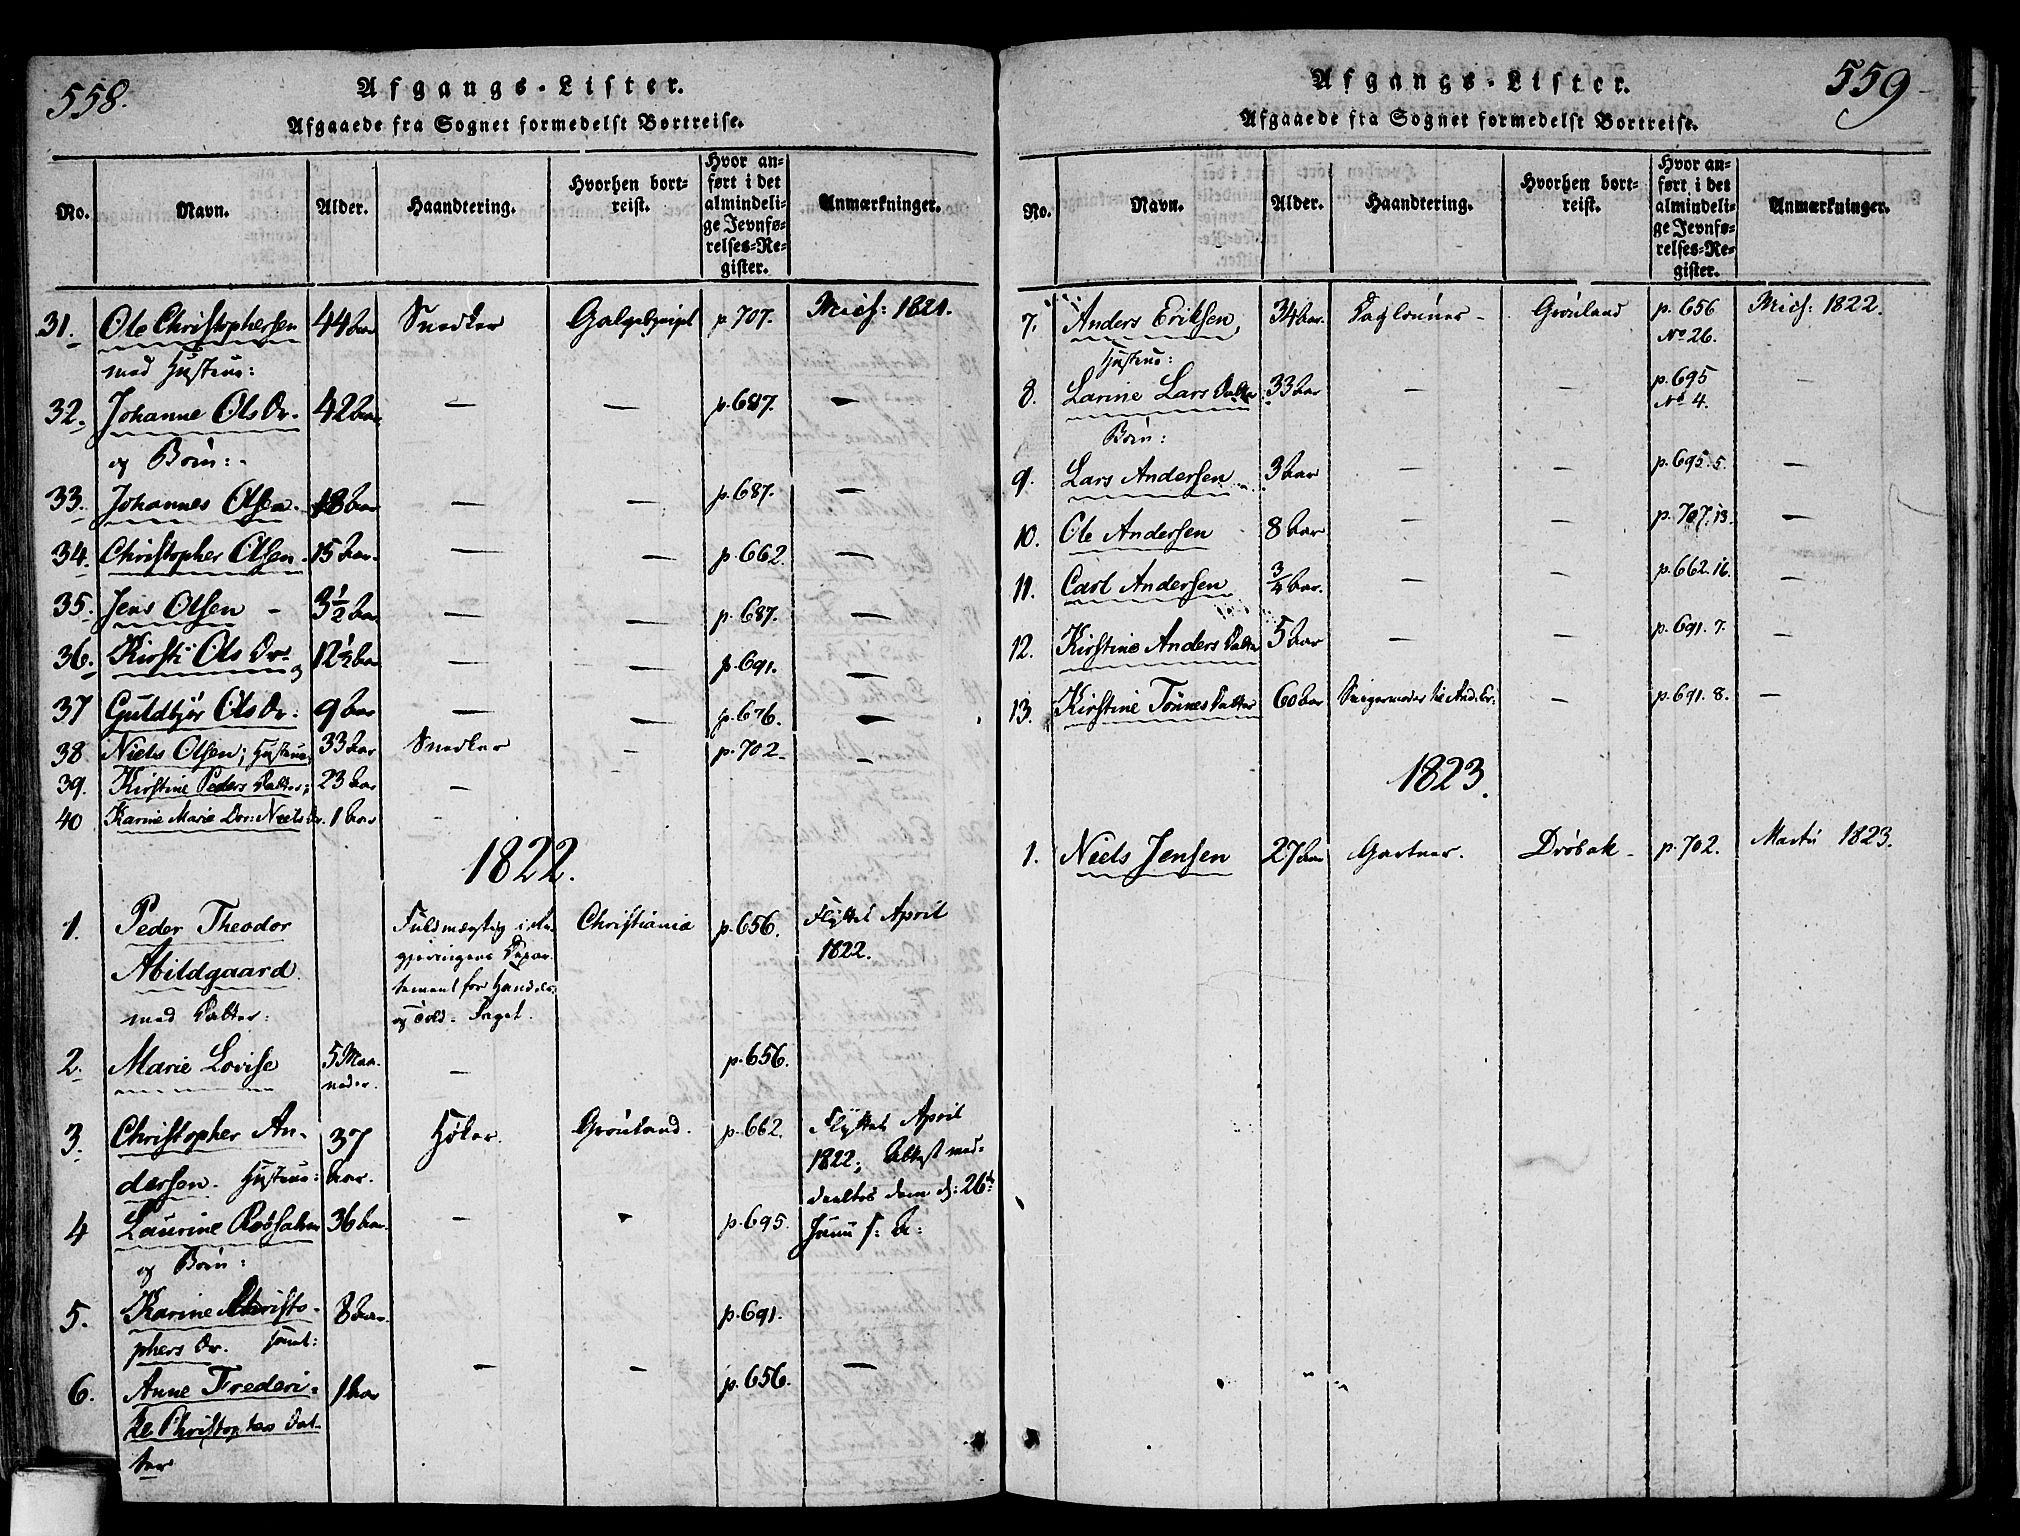 558.
Afgangs-Lister.
Afgaaede fra Sognet formedelst Bortreise.
No. Navn. Alder. Haandtering. Hvorhen bortreist. Hvor anført i det almindelige Jevnførelses-Register. Anmærkninger.
31. Ole Christophersen 44 Aar Snedker p. 707. Mich: 1821.
med Hustrue:
32. Johanne Ols Dr. 42 Aar — — p. 687. —
og Børn:
33. Johannes Olsen 18 Aar — — p. 687. —
34. Christopher Olsen 15 Aar — — p. 662. —
35. Jens Olsen 3½ Aar — — p. 687. —
36. Kirsti Ols Dr. 12½ Aar — — p. 691. —
37 Guldbjør Ols Dr. 9 Aar — — p. 676. —
38 Niels Olsen; Hustrue 33 Aar Snedker — p. 702. —
39. Kirstine Peders Datter; 23 Aar —
40 Karine Marie Dr: Niels Dr. 1 Aar —
1822.
1. Peder Theodor Fuldmægtig i Re- Christiania p. 656. Flyttet April
Abildgaard gjeringens Depar- 1822.
med Datter: tement for Handels
og Told-Faget.
2. Marie Lovise 5 Maa- — p. 656.
neder.
3. Christopher An- 37 Høker. Grønland. p. 662. Flyttet April
dersen. Hustrue: Aar. 1822; Attest med-
deeltes dem d: 26de
4 Laurine Røsholm 36 Aar. — - p. 695. Junii s: A:
og Børn:
5. Karine Christo- 8 Aar. p. 691.
phers Dr. samt:
6. Anne Frederi- 1 Aar — — p. 656. —
ke Christophers Dat-
ter
559
Afgangs-Lister.
Afgaaede fra Sognet formedelst Bortreise.
No. Navn. Alder. Haandtering. Hvorhen bortreist. Hvor anført i det almindelige Jevnførelses-Register. Anmærkninger.
7. Anders Eriksen, 34 Aar. Daglønner - Grønland p. 656 Mich: 1822.
No 26.
Hustrue:
8. Larine Lars Datter 33 Aar — — p. 695 —
No 4.
Børn:
9. Lars Andersen 3 Aar — — p. 695. 5. —
10. Ole Andersen 8 Aar — — p. 707. 13. —
11. Carl Andersen ¾ Aar. — — p. 662. 16. —
12. Kirstine Anders Datter 5 Aar — — p. 691. 7. —
13. Kirstine Tønnes Datter 60 Aar Svigermoder til And. Er: — p. 691. 8. —
1823.
1. Niels Jensen 27 Aar Gartner. Drøbak - p. 702. Martii 1823.